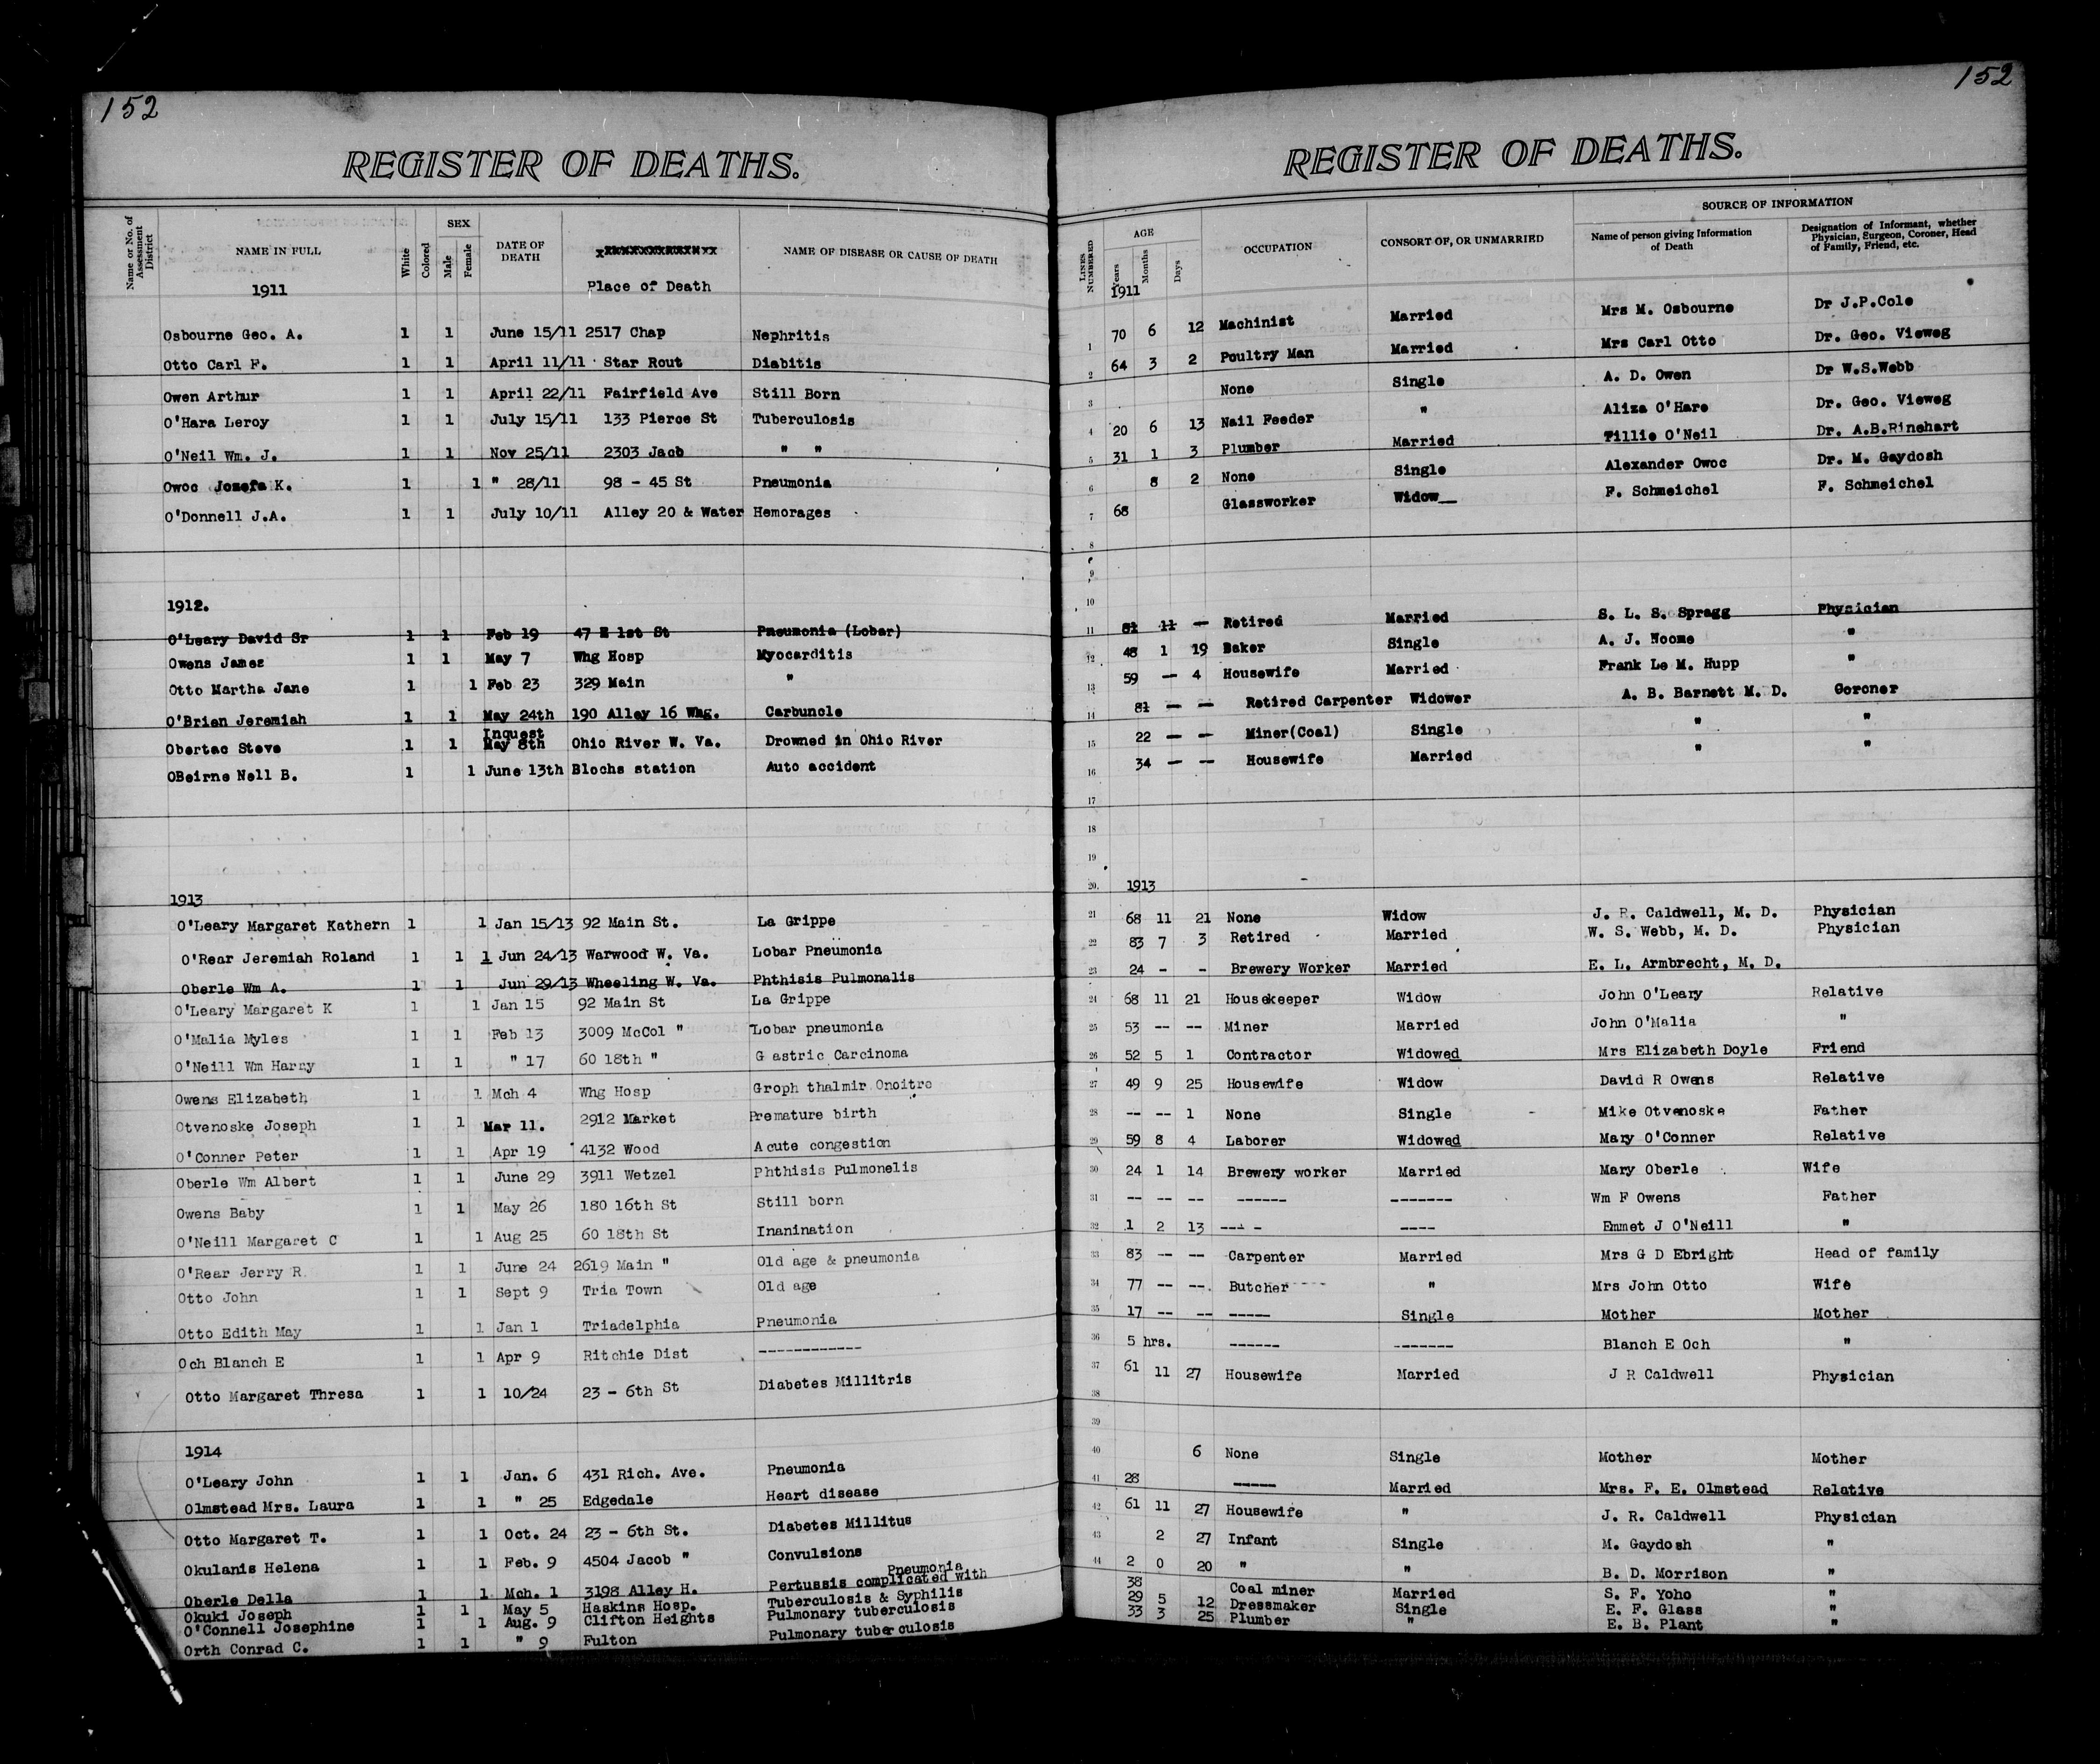 152
REGISTER OF DEATHS.
Name or No. of Assessment District
NAME IN FULL
White
Colored
SEX
Male
Female
DATE OF DEATH
Place of Death
NAME OF DISEASE OR CAUSE OF DEATH
1911
Osbourne Geo. A. 1 1 June 15/11 2517 Chap Nephritis
Otto Carl F. 1 1 April 11/11 Star Rout Diabitis
Owen Arthur 1 1 April 22/11 Fairfield Ave Still Born
O'Hara Leroy 1 1 July 15/11 133 Pierce St Tuberculosis
O'Neil Wm. J. 1 1 Nov 25/11 2303 Jacob " "
Owoc Jozefa K. 1 1 " 28/11 98 - 45 St Pneumonia
O'Donnell J.A. 1 1 July 10/11 Alley 20 & Water Hemorages
1912.
O'Leary David Sr 1 1 Feb 19 47 E 1st St Pneumonia (Lobar)
Owens James 1 1 May 7 Whg Hosp Myocarditis
Otto Martha Jane 1 1 Feb 23 329 Main "
O'Brien Jeremiah 1 1 May 24th 190 Alley 16 Whg. Carbuncle
Inquest
Obertac Steve 1 1 May 8th Ohio River W. Va. Drowned in Ohio River
OBeirne Nell B. 1 1 June 13th Blochs station Auto accident
1913
O'Leary Margaret Kathern 1 1 Jan 15/13 92 Main St. La Grippe
O'Rear Jeremiah Roland 1 1 1 Jun 24/13 Warwood W. Va. Lobar Pneumonia
Oberle Wm A. 1 1 Jun 29/13 Wheeling W. Va. Phthisis Pulmonalis
O'Leary Margaret K 1 1 Jan 15 92 Main St La Grippe
O'Malia Myles 1 1 Feb 13 3009 McCol " Lobar pneumonia
O'Neill Wm Harry 1 1 " 17 60 18th " Gastric Carcinoma
Owens Elizabeth 1 1 Mch 4 Whg Hosp Groph thalmir Onoitre
Otvenoske Joseph 1 1 Mar 11. 2912 Market Premature birth
O'Conner Peter 1 1 Apr 19 4132 Wood Acute congestion
Oberle Wm Albert 1 1 June 29 3911 Wetzel Phthisis Pulmonelis
Owens Baby 1 1 May 26 180 16th St Still born
O'Neill Margaret C 1 1 Aug 25 60 18th St Inanination
O'Rear Jerry R. 1 1 June 24 2619 Main " Old age & pneumonia
Otto John 1 1 Sept 9 Tria Town Old age
Otto Edith May 1 1 Jan 1 Triadelphia Pneumonia
Och Blanch E 1 1 Apr 9 Ritchie Dist ------------
Otto Margaret Thresa 1 1 10/24 23 - 6th St Diabetes Millitris
1914
O'Leary John 1 1 Jan. 6 431 Rich. Ave. Pneumonia
Olmstead Mrs. Laura 1 1 " 25 Edgedale Heart disease
Otto Margaret T. 1 1 Oct. 24 23 - 6th St. Diabetes Millitus
Okulanis Helena 1 1 Feb. 9 4504 Jacob " Convulsions
Pneumonia
Oberle Della 1 1 Mch. 1 3198 Alley H. Pertussis complicated with
Okuki Joseph 1 1 May 5 Haskins Hosp. Tuberculosis & Syphilis
O'Connell Josephine 1 1 Aug. 9 Clifton Heights Pulmonary tuberculosis
Orth Conrad C. 1 1 " 9 Fulton Pulmonary tuberculosis
152
REGISTER OF DEATHS.
LINES NUMBERED
AGE
Years
Months
Days
OCCUPATION
CONSORT OF, OR UNMARRIED
SOURCE OF INFORMATION
Name of person giving Information of Death
Designation of Informant, whether Physician, Surgeon, Coroner, Head of Family, Friend, etc.
1911
1 70 6 12 Machinist Married Mrs M. Osbourne Dr J.P.Cole
2 64 3 2 Poultry Man Married Mrs Carl Otto Dr. Geo. Vieweg
3 None Single A. D. Owen Dr W.S.Webb
4 20 6 13 Nail Feeder " Aliza O'Hare Dr. Geo. Vieweg
5 31 1 3 Plumber Married Tillie O'Neil Dr. A.B.Rinehart
6 8 2 None Single Alexander Owoc Dr. M. Gaydosh
7 68 Glassworker Widow__ F. Schmeichel F. Schmeichel
8
9
10
11 81 11 — Retired Married S. L. S. Spragg Physician
12 48 1 19 Baker Single A. J. Noome "
13 59 — 4 Housewife Married Frank Le M. Hupp "
14 81 — — Retired Carpenter Widower A. B. Barnett M. D. Coroner
15 22 — — Miner(Coal) Single " "
16 34 — — Housewife Married " "
17
18
19
20. 1913
21 68 11 21 None Widow J. R. Caldwell, M. D. Physician
22 83 7 3 Retired Married W. S. Webb, M. D. Physician
23 24 - - Brewery Worker Married E. L. Armbrecht, M. D.
24 68 11 21 Housekeeper Widow John O'Leary Relative
25 53 -- -- Miner Married John O'Malia "
26 52 5 1 Contractor Widowed Mrs Elizabeth Doyle Friend
27 49 9 25 Housewife Widow David R Owens Relative
28 -- -- 1 None Single Mike Otvenoske Father
29 59 8 4 Laborer Widowed Mary O'Conner Relative
30 24 1 14 Brewery worker Married Mary Oberle Wife
31 -- -- -- ------ ------- Wm F Owens Father
32 1 2 13 ---- ---- Emmet J O'Neill "
33 83 -- -- Carpenter Married Mrs G D Ebright Head of family
34 77 -- --. Butcher " Mrs John Otto Wife
35 17 -- -- ----- Single Mother Mother
36 5 hrs. ------ ------- Blanch E Och "
37 61 11 27 Housewife Married J R Caldwell Physician
38
39
40 6 None Single Mother Mother
41 28 ----- Married Mrs. F. E. Olmstead Relative
42 61 11 27 Housewife " J. R. Caldwell Physician
43 2 27 Infant Single M. Gaydosh "
44 2 0 20 " " B. D. Morrison "
38 Coal miner Married S. F. Yoho "
29 5 12 Dressmaker Single E. F. Glass "
33 3 25 Plumber " E. B. Plant "